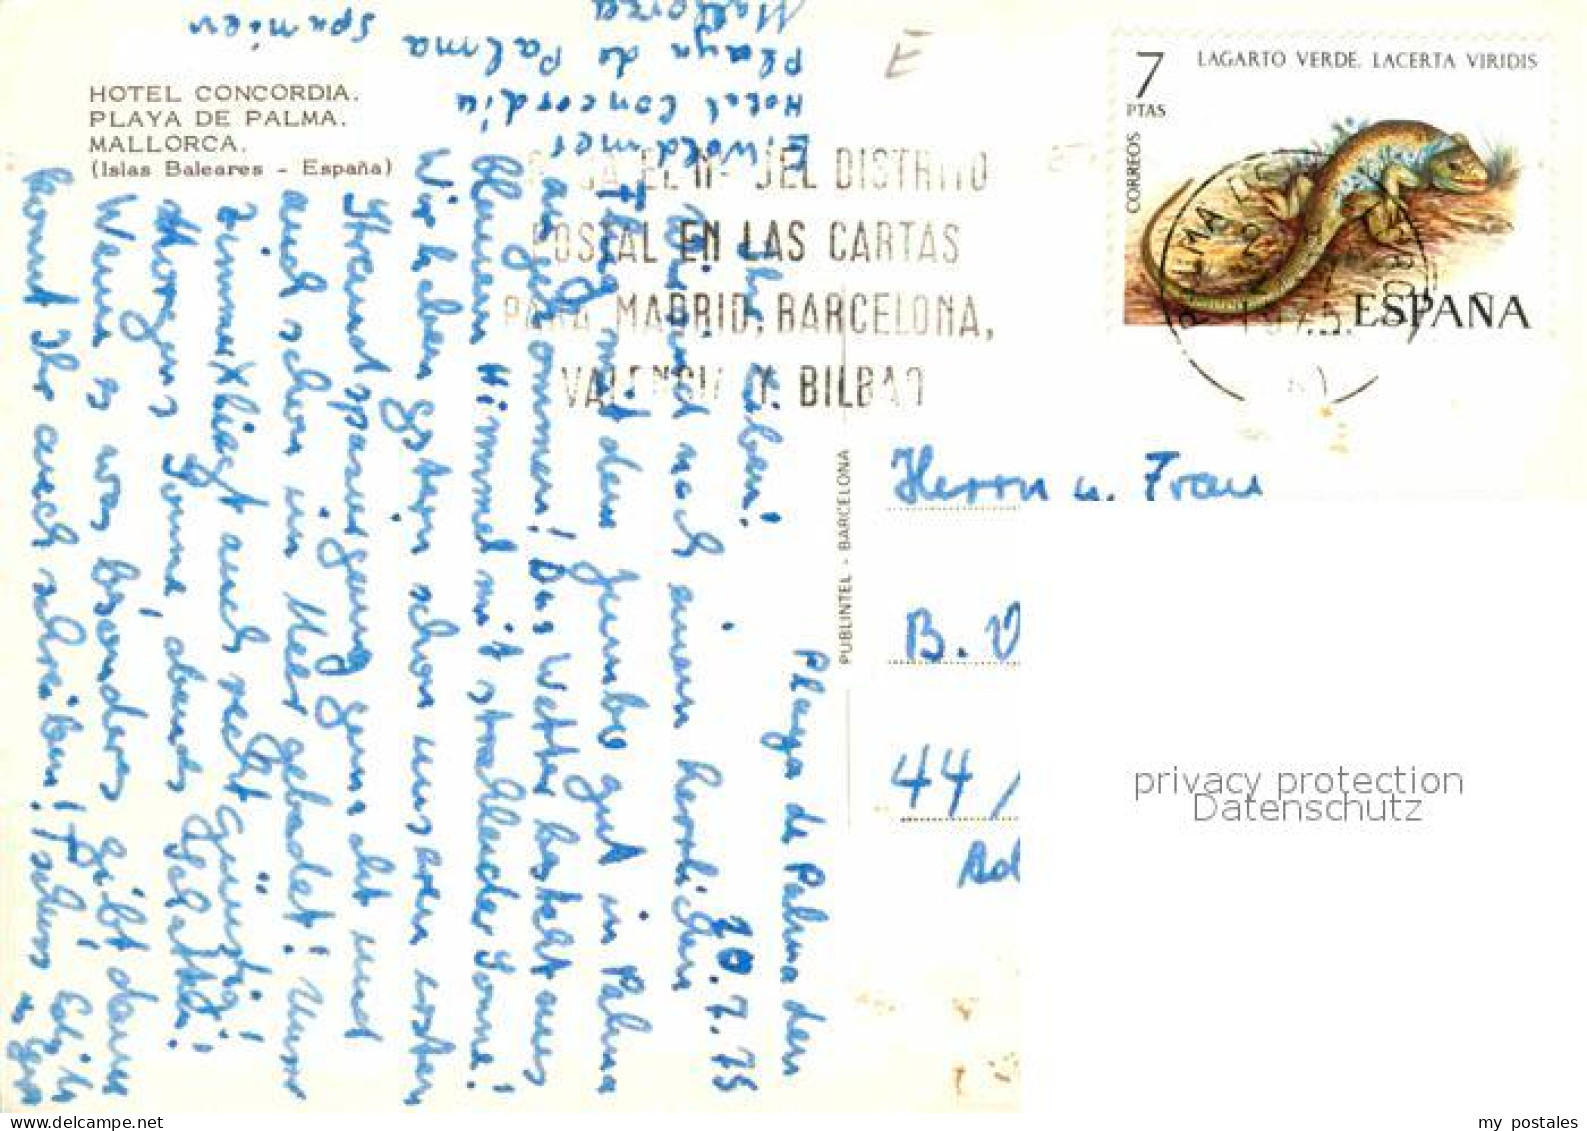 HOTEL CONCORDIA.
PLAYA DE PALMA.
MALLORCA.
(Islas Baleares - España)
E. Woldmer
Hotel Concordia
Playa de Palma
Mallorca
Spanien
Playa de Palma den
20.7.75
Ihr Lieben!
Wir sind nach einem herrlichen
Flug mit dem Jumbo gut in Palma
angekommen! Das Wetter besteht aus
blauem Himmel mit strahlender Sonne!
Wir haben gestern schon unseren ersten
Strandspaziergang gemacht und
auch schon im Meer gebadet! Unser
Zimmer liegt auch recht günstig!
Morgens Sonne, abends Schatten!
Wenn es was besonderes gibt dann
könnt Ihr auch schreiben! Tschüss
PUBLINTEL - BARCELONA
E
EL Nº DEL DISTRITO
POSTAL EN LAS CARTAS
PARA MADRID, BARCELONA,
VALENCIA Y BILBAO
7
PTAS
LAGARTO VERDE. LACERTA VIRIDIS
CORREOS
ESPAÑA
Herrn u. Frau
B.
44
privacy protection
Datenschutz
my postales